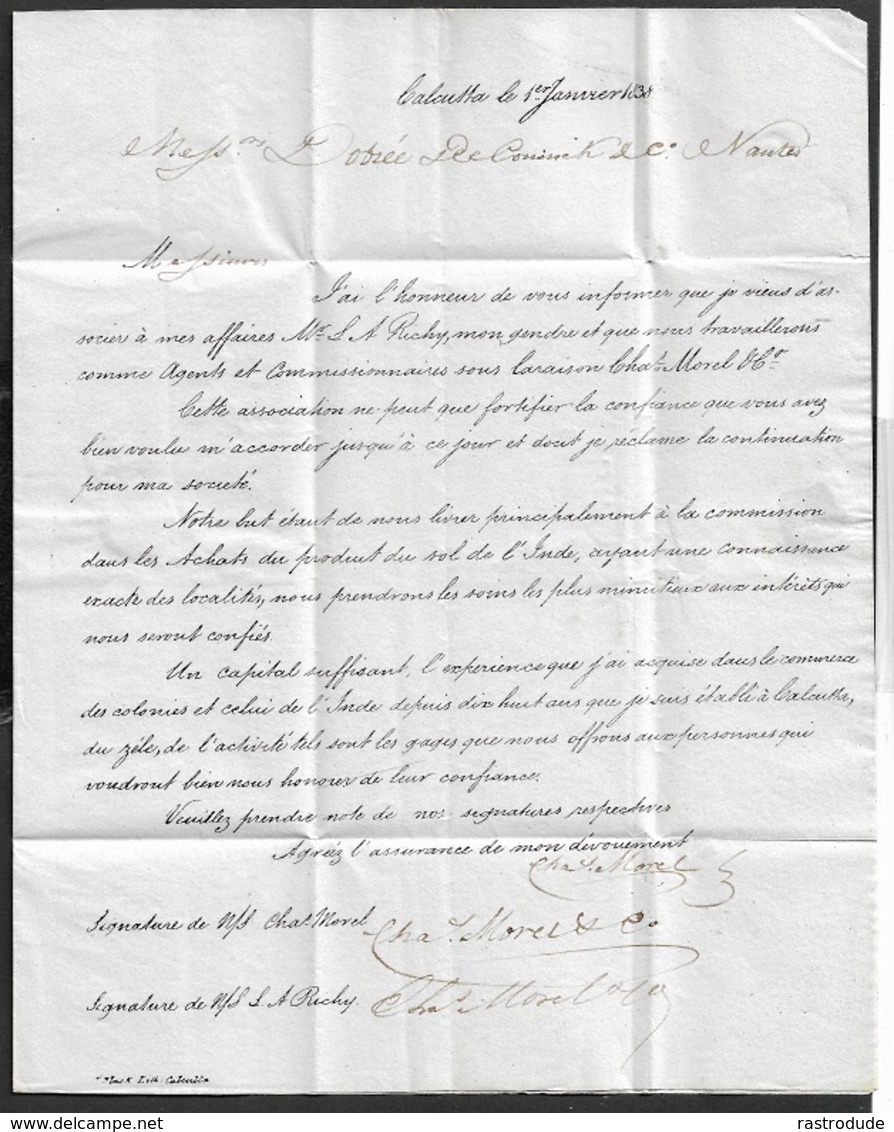 Calcutta le 1er Janvier 1838
Mess.rs Dobrée De Coninck & Co. Nantes
Messieurs
J'ai l'honneur de vous informer que je viens d'as-
socier à mes affaires Mr. L A Richy, mon gendre et que nous travaillerons
comme Agents et Commissionnaires sous la raison Chas. Morel & Co.
Cette association ne peut que fortifier la confiance que vous avez
bien voulu m'accorder jusqu'à ce jour et dont je réclame la continuation
pour ma societé.
Notre but étant de nous livrer principalement à la commission
dans les Achats du produit du sol de l'Inde, ayant une connaissance
exacte des localités, nous prendrons les soins les plus minutieux aux intérêts qui
nous seront confiés.
Un capital suffisant, l'expérience que j'ai acquise dans le commerce
des colonies et celui de l'Inde depuis dix huit ans que je suis établi à Calcutta,
du zéle, de l'activité tels sont les gages que nous offrons aux personnes qui
voudront bien nous honorer de leur confiance.
Veuillez prendre note de nos signatures respectives
Agréez l'assurance de mon dévouement
Chas. Morel
Signature de N/S Chas. Morel Chas. Morel & Co.
Signature de N/S L. A Richy. Chas. Morel & Co
Lith. Calcutta
rastrodude